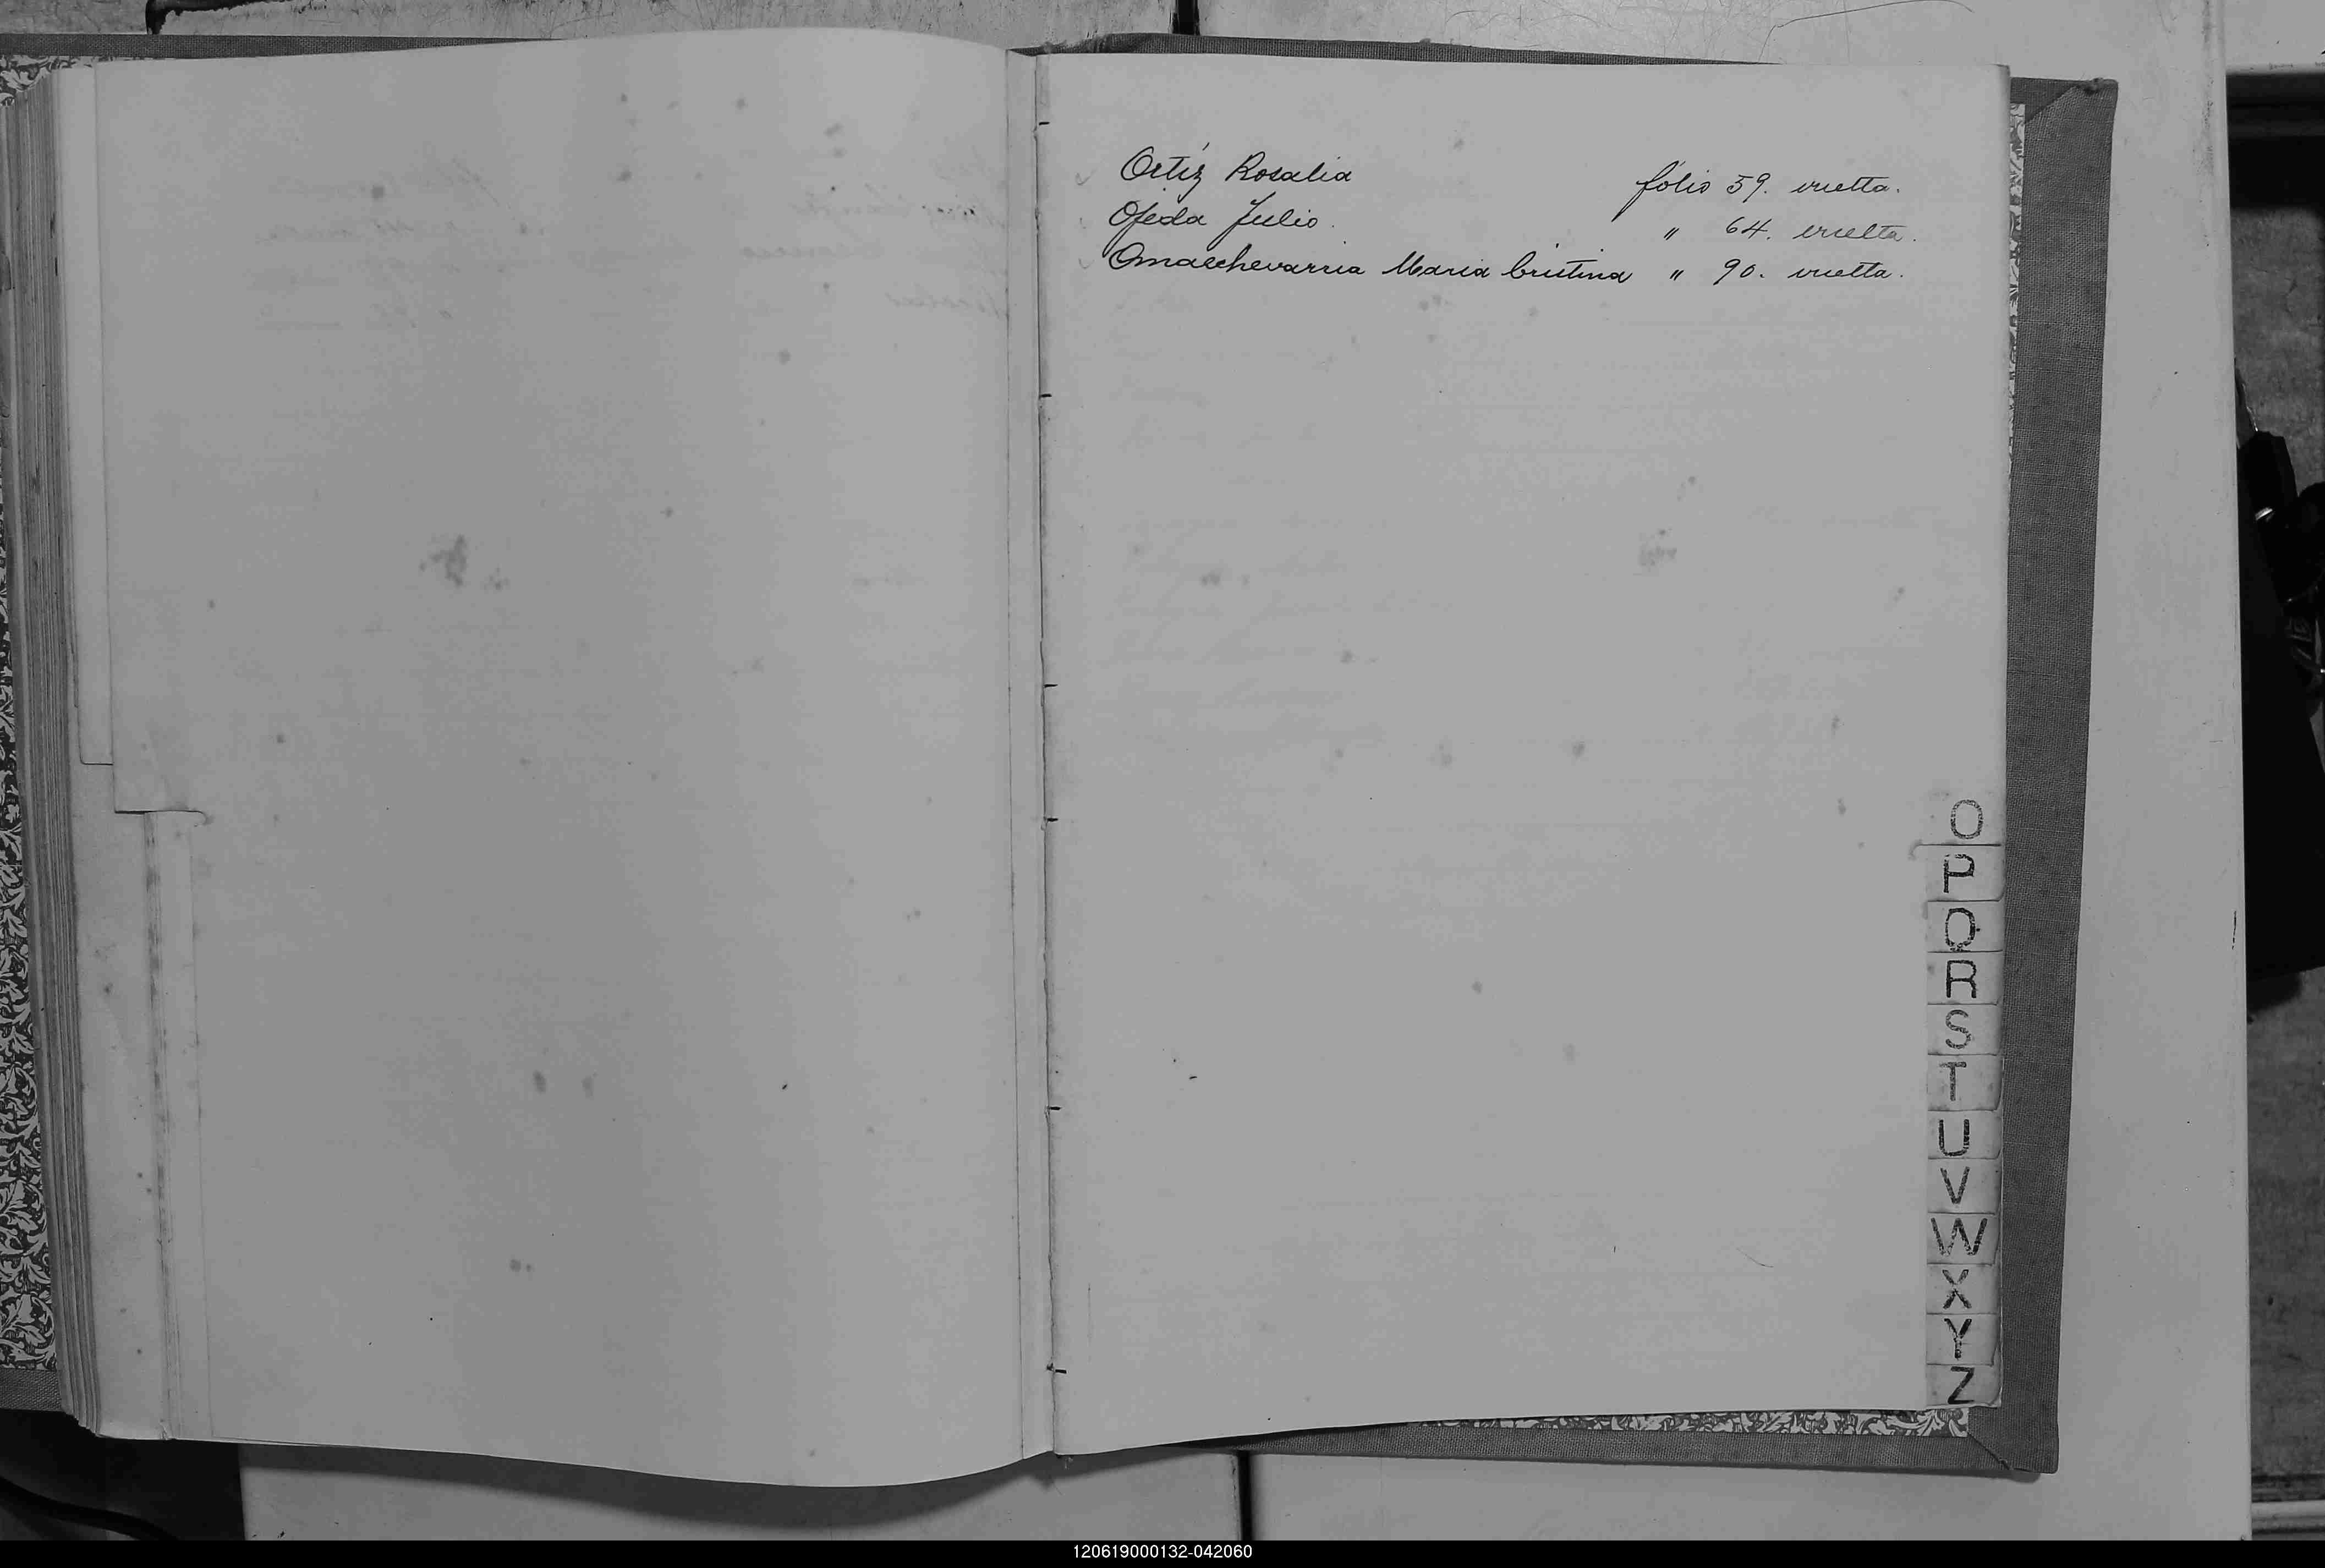 Ortíz Rosalia folio 59. vuelta.
Ojeda Julio. " 64. vuelta.
Omaechevarria Maria Cristina " 90. vuelta.
O
P
Q
R
S
T
U
V
W
X
Y
Z
120619000132-042060